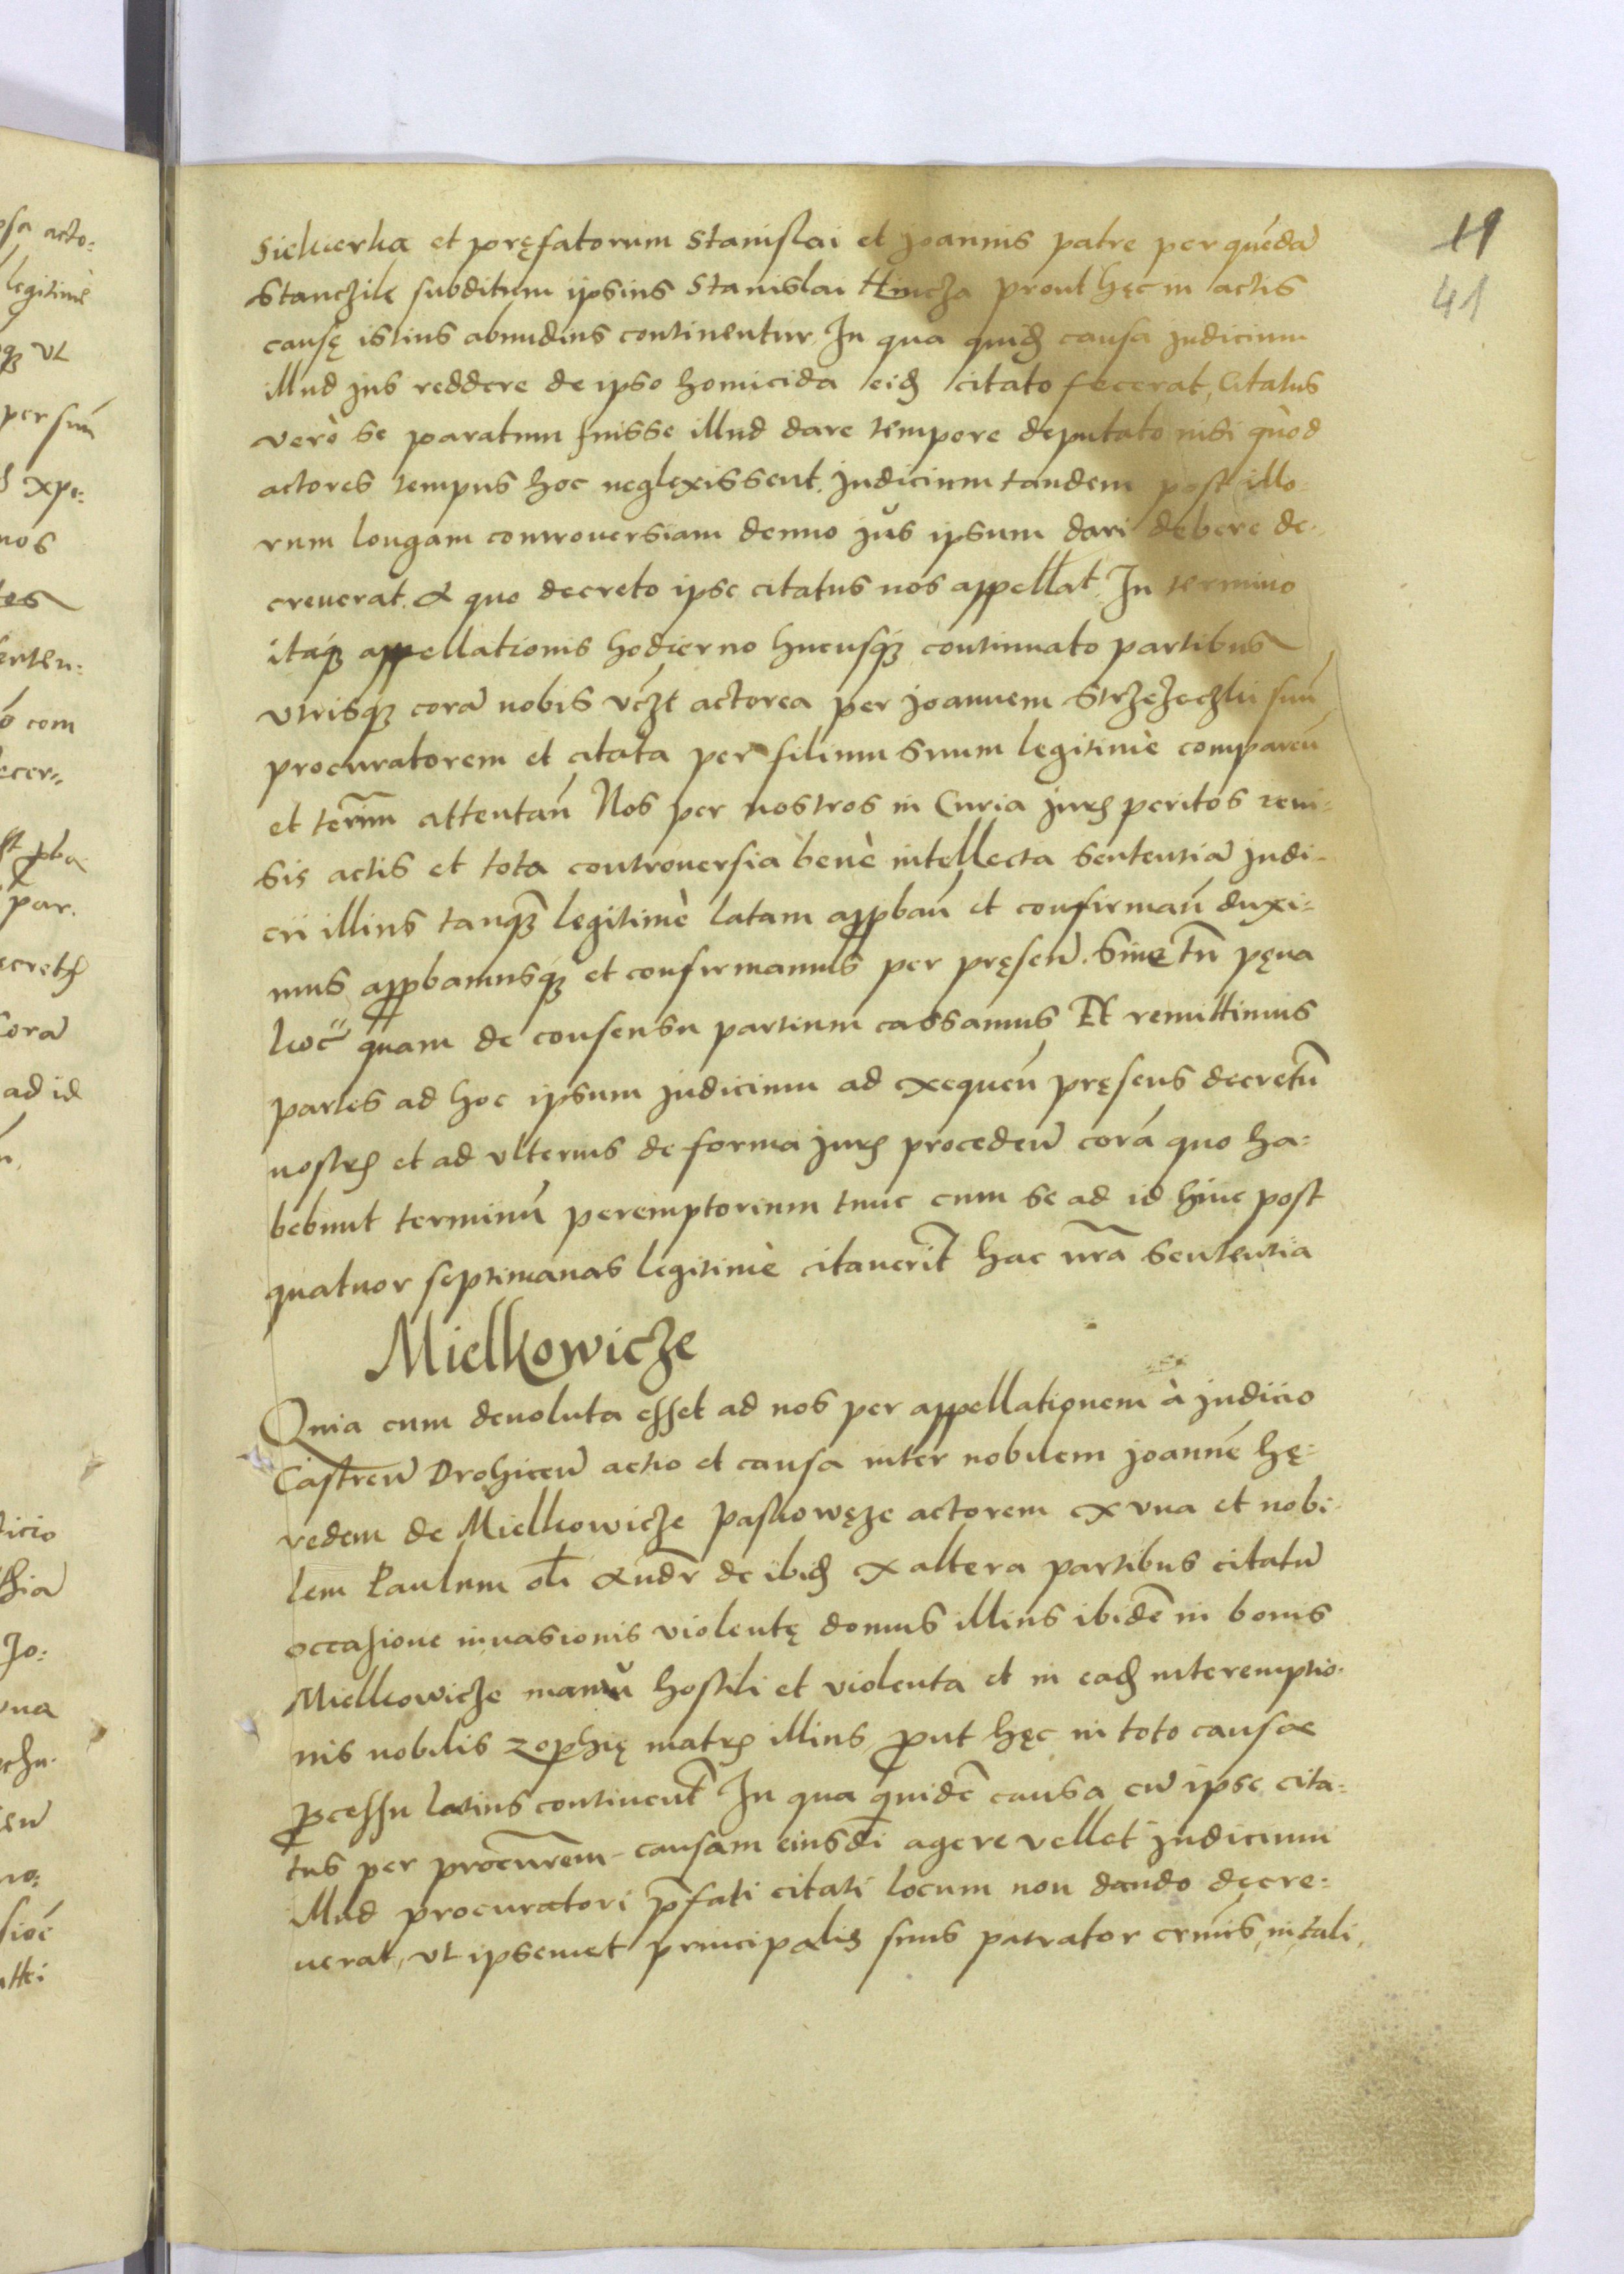 11
41
Siekierka et pręfatorum Stanislai et Joannis patre per quẽdã
Stanczilę subditum ipsius Stanislai Hincza prout hęc in actis
causę istius abundius continentur. In qua quidẽ causa judicium
illud jus reddere de ipso homicida eidẽ citato fecerat, Citatus
verò se paratum fuisse illud dare tempore deputato nisi quòd
actores tempus hoc neglexissent. Judicium tandem post illo-
rum longam controuersiam denuo jus ipsum dari debere de-
creuerat. A quo decreto ipse citatus nos appellat̃. In termino
itaq; appellationis hodierno hucusq; continuato partibus
vtrisq; corã nobis vczt actorea per Joannem Strzezeczki suũ
procuratorem et citata per filium suum legitimè compareñ
et termĩm attentañ Nos per nostros in Curia juris peritos reui-
sis actis et tota controuersia benè intellecta sententiã judi-
cii illius tanq̃ legitimè latam approbañ et confirmañ duxi-
mus approbamusq; et confirmamus per pręseñ. Sine tñ pęna
kocż quam de consensu partium cassamus Et remittimus
partes ad hoc ipsum judicium ad exequeñ pręsens decretũ
nostrũ et ad vlterius de forma juris procedeñ corã quo ha-
bebunt terminũ peremptorium tunc cum se ad id hinc post
quatuor septimanas legitimè citauerĩt hac nr̃a sententia
Mielkowicze
Quia cum deuoluta esset ad nos per appellationem à judicio
Castreñ Drohiceñ actio et causa inter nobilem Joannẽ hę-
redem de Mielkowicze Paskowęze actorem ex vna et nobi-
lem Paulum oli Andr̃ de ibidẽ ex altera partibus citatũ
occasione inuasionis violentę domus illius ibidẽ in bonis
Mielkowicze manu hostili et violenta et in eadẽ interemptio-
nis nobilis Zophię matris illius, ꝓut hęc in toto causae
ꝓcessu latius continent̃ In qua quidẽ causa cũ ipse cita-
tus per procur̃em causam eiusdi agere vellet judicium
illud procuratori p̃fati citati locum non dando decre-
uerat, vt ipsemet principalis suus patrator crĩnis, in tali